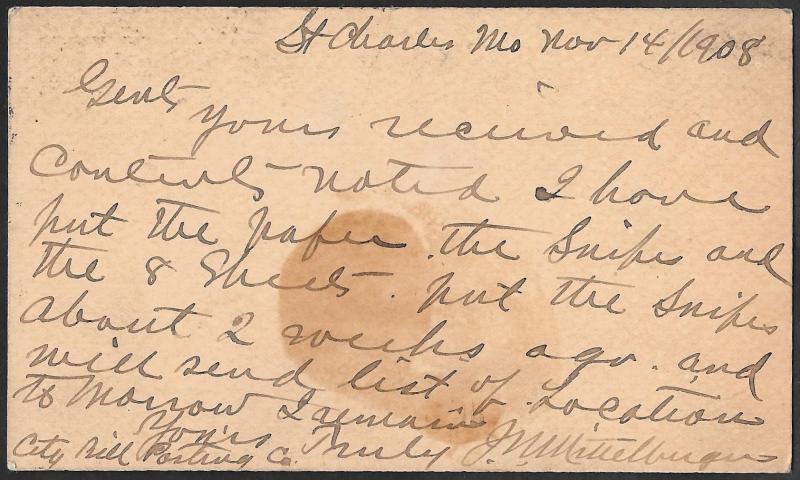 St Charles Mo Nov 14/1908
Gents
yours received and
Contents noted I have
put the paper. the Snipes and
the 8 Sheets. put the Snipes
about 2 weeks ago. and
will send list of Location
to Morrow I remain
Yours Truly J.M. Mittelberger
City Bill Posting Co